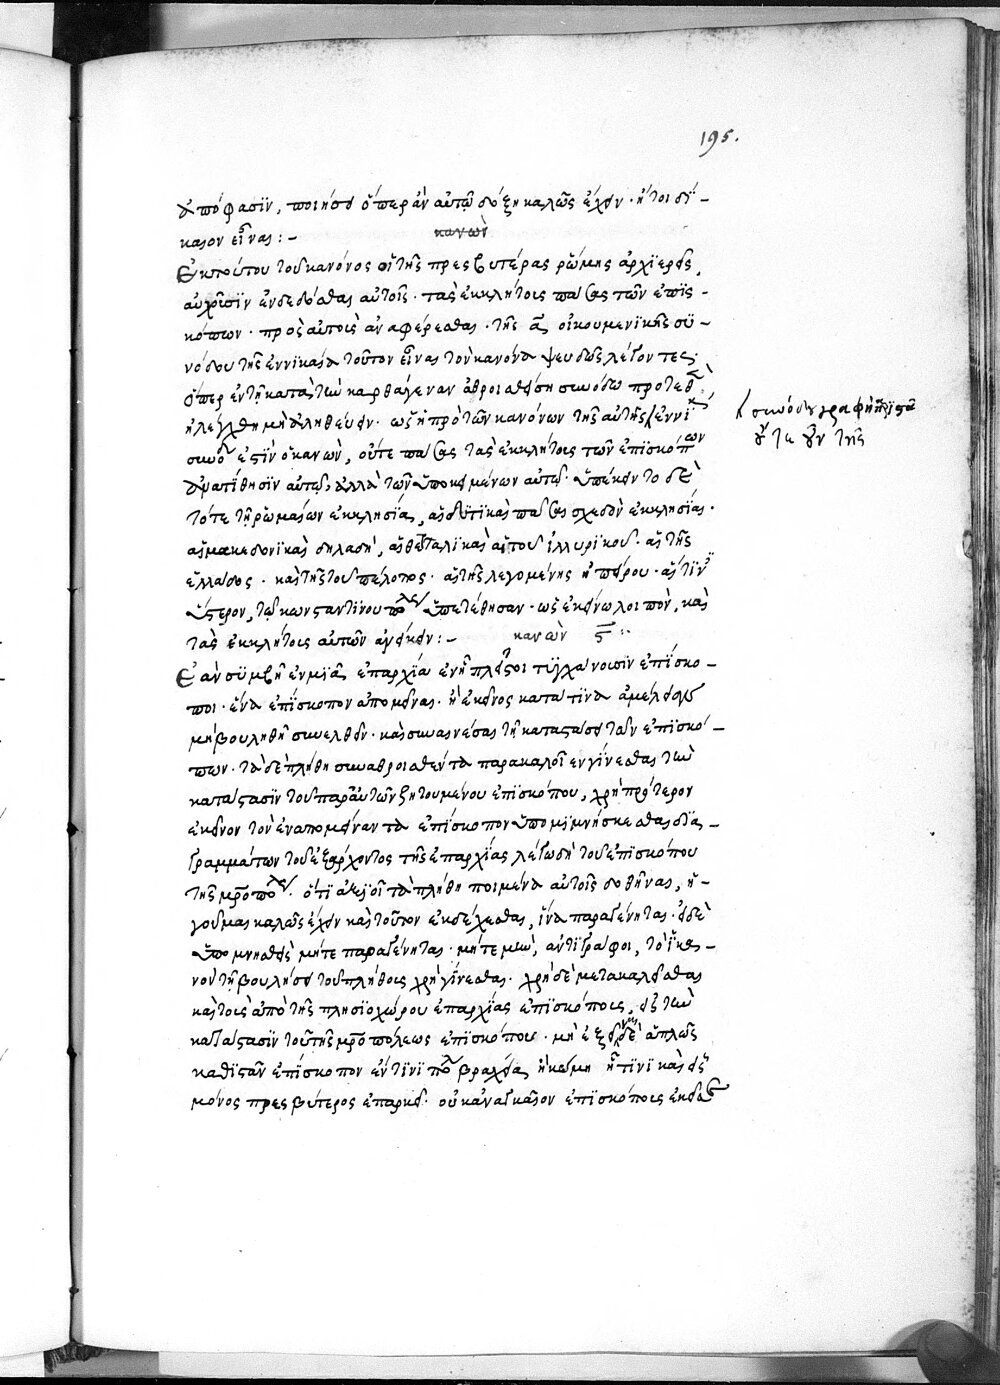 195.
ἀπόφασϊν, ποιήσει ὅπερ ἂν αὐτῶ δόξη καλῶς ἔχειν · ἤτοι δί –
καιον εἶναι : –
κανὼν
Ἐκ τούτου τοῦ κανόνος οἱ τῆς πρεσβυτέρας ῥώμης ἀρχϊερεῖς,
αὐχοῦσϊν ἐνδεδόσθαι αὐτοῖς · τὰς ἐκκλήτοις πάσας τῶν ἐπισ –
κόπων · πρὸς αὐτοὺς ἀναφέρεσθαι · τῆς α οἰκουμενικῆς συ –
νόδου τῆς ἐν νικαία τοῦτον εἶναι τὸν κανόνα ψευδῶς λέγοντες ·
ὅπερ ἐν τῆ κατὰ τὴν καρθάγεναν ἀθροισθείση συνόδω προτεθ,
ἠλέγχθη μὴ ἀληθεύειν · ὡς ἡ πρὸ τῶν κανόνων τῆς αὐτῆς
συνόδου γραφὴ
οὔτε οὖν τῆς ἐν νι
συνοδ ἐστὶν ὁ κανὼν, οὔτε πάσας τὰς ἐκκλήτοις τῶν ἐπϊσκόπων
ἀνατίθησϊν αὐτῶ, ἀλλὰ τῶν ὑποκειμένων αὐτῶ · ὑπέκειντο δὲ
τότε τῆ ῥωμαίων ἐκκλησία, αἱ δυτικαὶ πᾶσαι σχεδὸν ἐκκλησίαι ·
αἱ μακεδονϊκαὶ δηλαδὴ, αἱ θετταλϊκαὶ αἱ τοῦ ἰλλυρϊκοῦ · αἱ τῆς
ἑλλάδος · καὶ τῆς τοῦ πέλοπος · αἱ τῆς λεγομένης ἠπείρου · αἵτϊν
ὕστερον, τῶ κωνσταντϊνουπόλεως ὑπετέθησαν · ὡς ἐκείνω λοιπὸν, καὶ
τὰς ἐκκλήτοις αὐτῶν ἀνήκειν : – κανὼν ϛ :
Ἐὰν συμβῆ ἐν μϊᾶ ἐπαρχία ἐν ἧ πλεῖστοι τυγχάνουσϊν ἐπίσκο –
ποι · ἕνα ἐπίσκοπον ἀπομεῖναι · ἢ ἐκεῖνος κατά τϊνα ἀμέλειαν
μὴ βουληθῆ συνελθεῖν · καὶ συναινέσαι τῆ καταστάσει τῶν ἐπισκό –
πων · τὰ δὲ πλήθη συναθροισθέντα παρακαλοῖ εν γίνεσθαι τὴν
κατάστασϊν τοῦ παρ' αὐτῶν ζητουμένου ἐπισκόπου, χρὴ πρότερον
ἐκεῖνον τὸν ἐναπομείναντα ἐπίσκοπον ὑπομϊμνήσκεσθαι διὰ –
γραμμάτων τοῦ ἐξάρχοντος τῆς ἐπαρχίας λέγω δὴ τοῦ ἐπισκόπου
τῆς μροπόλεως · ὅτϊ ἀξιοῖ τὰ πλήθη ποιμένα αὐτοῖς δοθῆναι, ἡ –
γοῦμαι καλῶς ἔχειν καὶ τοῦτον ἐκδέχεσθαι, ἵνα παραγένηται · εἰ δὲ
ὑπομνησθεὶς μήτε παραγένηται · μήτε μὴν, ἀντιγράφοι, τὸ ἱκα –
νὸν τῆ βουλήσει τοῦ πλήθοις χρὴ γίνεσθαι · χρὴ δὲ μετακαλεῖσθαι
καὶ τοὺς ἀπὸ τῆς πλησϊοχώρου ἐπαρχίας ἐπισκόποις, εἰς τὴν
κατάστασϊν τοῦ τῆς μροπόλεως ἐπισκόπου · μὴ ἐξεῖναι δὲ ἁπλῶς
καθϊστᾶν ἐπίσκοπον ἔν τϊνϊ πο βραχεία, ἢ κώμη ἥτϊνϊ καὶ εἷς
μόνος πρεσβύτερος ἐπαρκεῖ · οὐκ ἀναγκαῖον ἐπισκόποις ἐκεῖσε